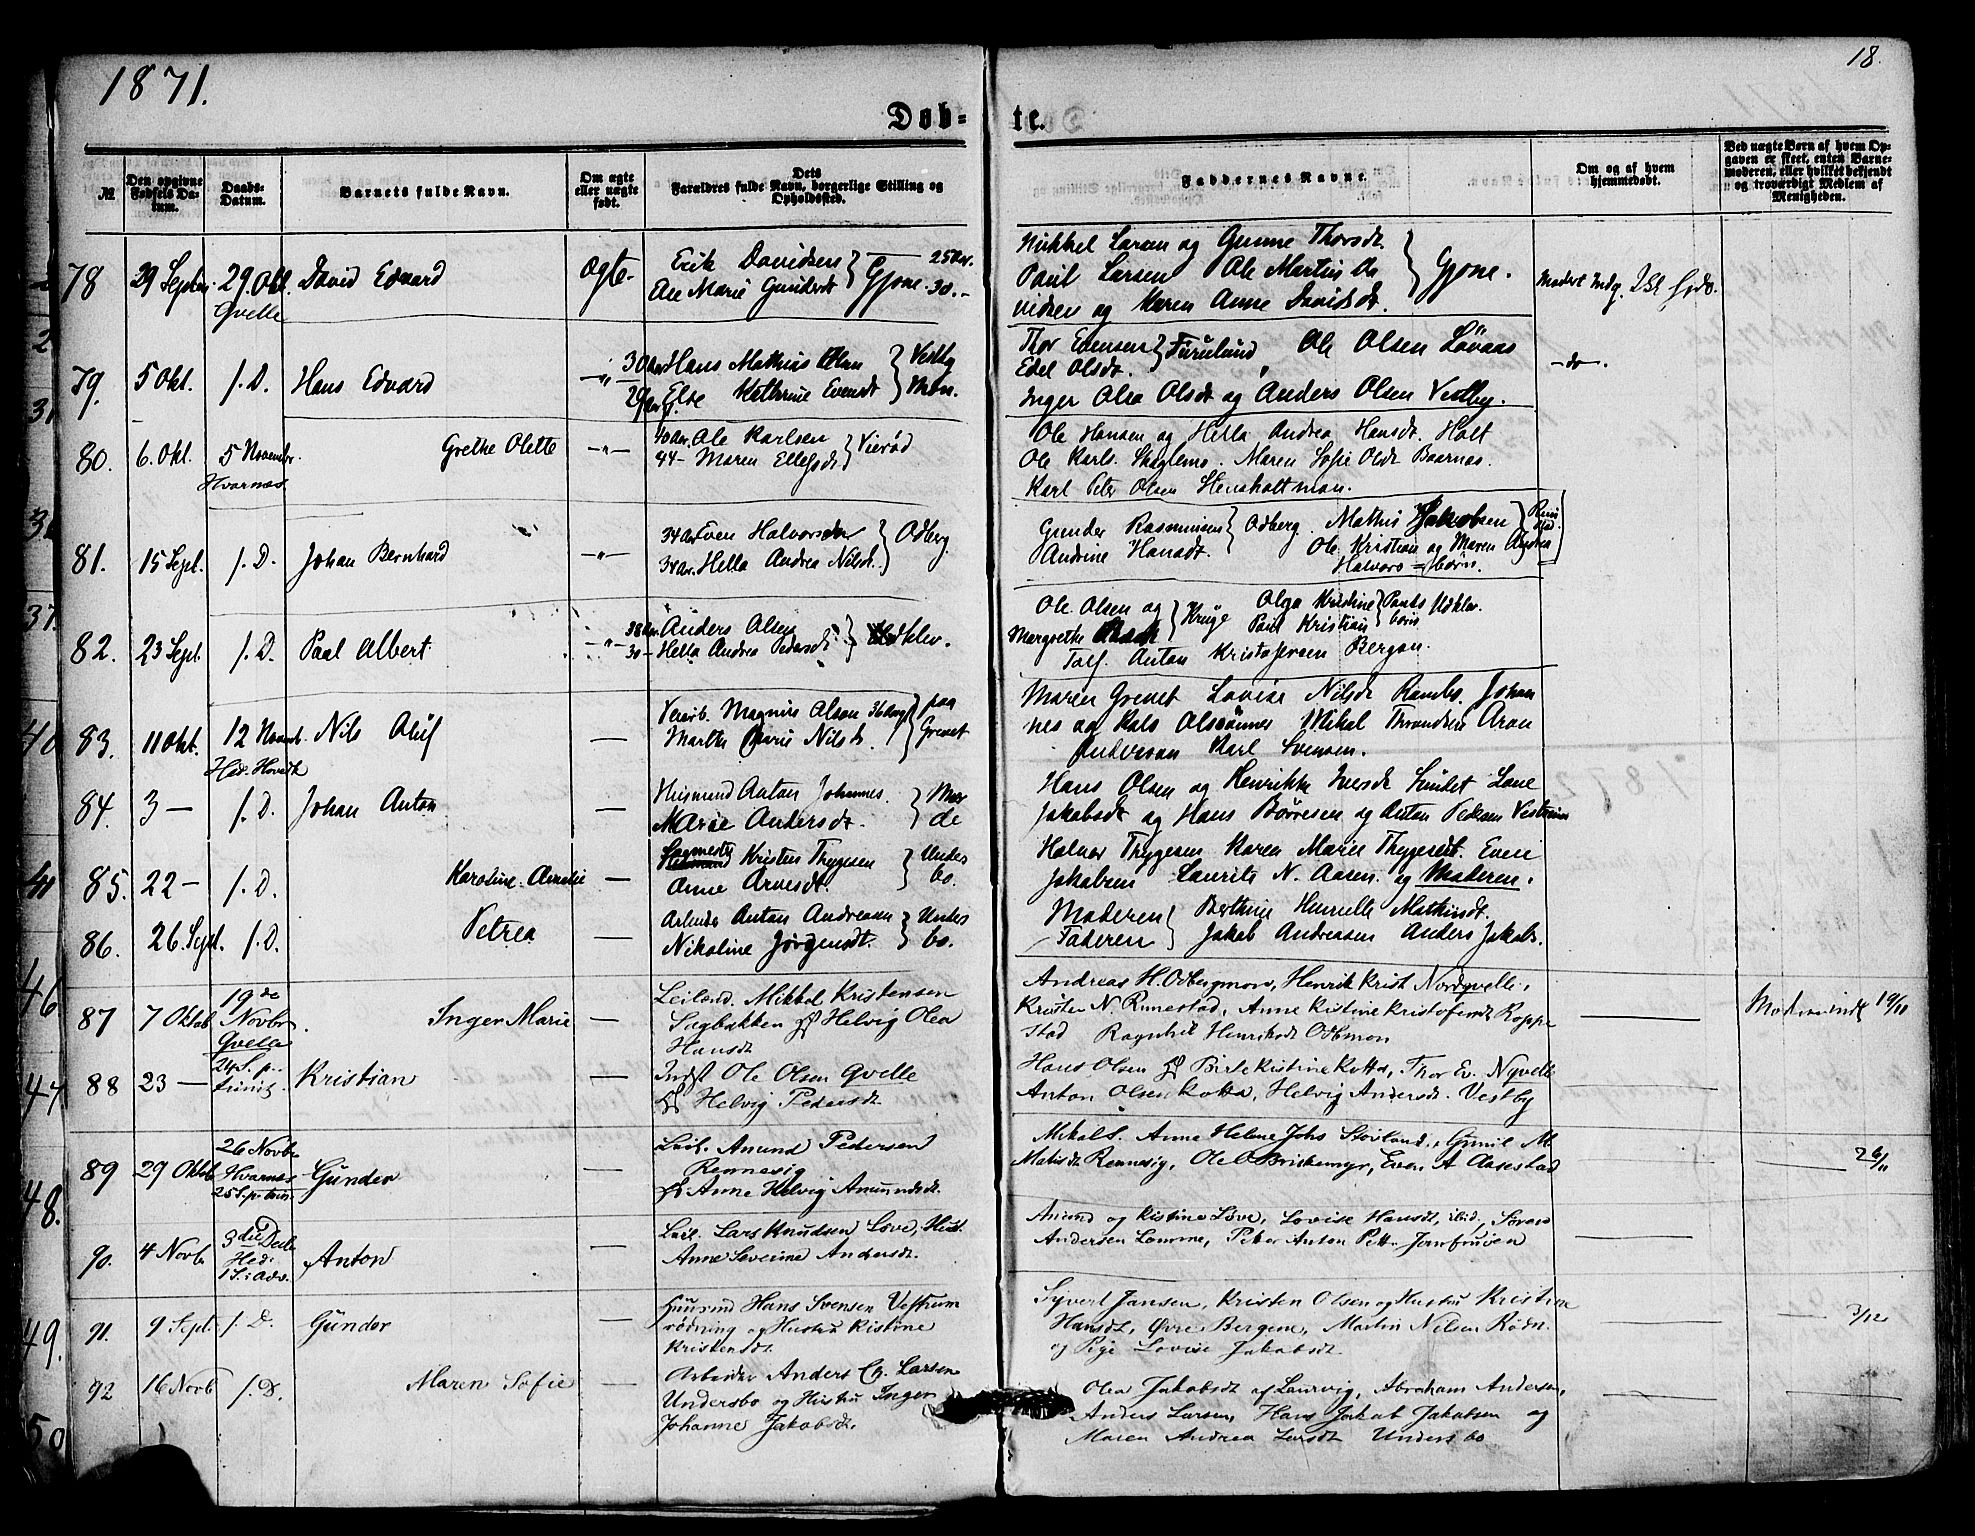 1871.
18.
Døb-
te.
№
Den opgivne Fødsels Datum.
Daabs-Datum.
Barnets fulde Navn.
Om ægte eller uægte født.
Dets Forældres fulde Navn, borgerlige Stilling og Opholdssted.
Faddernes Navne.
Om og af hvem hjemmedøbt.
Ved uægte Børn af hvem Opgaven er skeet, enten Barnemoderen, eller hvilket bekjendt og troværdigt Medlem af Menigheden.
78 29 Septbr. 29. Okt. Gvelle David Edvard Ægte.
Erik Davidsen
Ane Marie Gundersdt } Gjone 25 Aar. 30.-
Mikkel Larsen og Gunne Thorsdt.
Paul Larsen Ole Martin Da
vidsen og Karen Anne Davidsdt. } Gjone.
79. 5 Okt. f. D. Hans Edvard -"-
Hans Mathias Olsen
29 Else Kathrine Evensdt } Vestby Mon.
Thor Evensen } Furulund, Ole Olsen Løvaas
Edel Olsdt.
Inger Olea Olsdt og Anders Olsen Vestby.
-do-.
80. 6. Okt. 5 Novembr. Hvarnæs Grethe Olette -"-
40 Aar. Ole Karlsen
44- Maren Ellefsdt } Vierød
Ole Hansen og Hella Andrea Hansdt. Holt
Ole Karls. Skoglems. Maren Sofie Olsdt Baarnæs.
Karl Peter Olsen Stensholtmon.
81. 15 Sept. f. D. Johan Bernhard -"-
34 Aar. Even Halvorsen
34 Aar. Hella Andrea Nilsdt. } Odberg
Gunder Rasmussen
Andrine Hansdt. } Odberg. Mathis Jakobsen
Ole Kristian og Maren Andrea
Halvors Børn.
82. 23 Sept. f. D. Paal Albert -"-
38 Aar. Anders Olsen
30- Hella Andrea Pedersdt } klev.
Ole Olsen og
Margrethe } Kruge Olga Kristine
Paul Kristian } børn
Anton Kristofersen Bergan.
83. 11 Okt. 12 Novemb. Hed. Nils Oluf —
Magnus Olsen 36 Aar
Marthe Marie Nilsdt. } paa Grevet
Maren Grevet Lovise Nilsdt Johan
nes og Olssønner Mikal Throndsen Aron
Andersson Karl Svensen.
84. 3 — f. D. Johan Anton —
Huusmand Anton Johannes.
Marie Andersdt. }
Hans Olsen og Henrikke Iversdt Lane
Jakobsdt og Hans Børresen og Anton Pedersen Vestrum
85. 22 — f. D. Karoline Amalie —
Kristen Thygesen
Anne Arnesdt. } Undersbo.
Halvor Thygesen Karen Marie Thygesdt. Even
Jakobsen Laurits N. Aasen og Moderen.
86. 26. Sept. f. D. Petrea —
Arbeider Anton Andreasen
Nikoline Jørgensdt. } Undersbo.
Moderen
Faderen } Berthine Henrille Mathisdt.
Jakob Andreasen Anders Jakobs.
87 7 Oktob 19de Novbr. Gvelle Inger Marie —
Leilænd. Mikkel Kristensen
Sagbakken Helvig Olea
Hansdt
Andreas H. Odbergmon, Henrik Krist Nordgvelle,
Kristen N. Rimestad, Anne Kistine Kristofersdt Roppe
stad Ragnhil Henriksdt Odbmon
19/11
88 23 — 24 S. p. trinit. Kristian —
Indst Ole Olsen Gvelle
Helvig Pedersdt
Hans Olsen Birte Kistine Kotta, Thor Ev. Nyvelle
Anton Olsen Kotta, Helvig Andersdt. Vestby
89 29 Oktob 26 Novbr Hvarnes 25 S. p. trin. Gunder —
Leil. Amund Pedersen
Rennesig
Anne Helvig Amundsdt.
Mikal Anne Helene Johs Støvland, Gunil M.
Matisdt Rennesig, Ole O Briskemyr, Even A Aasestad
26/11
90. 4 Novb. 3die Decbr Hed. 1 S. i Adv. Anton —
Leil. Lars Knudsen Løve, Hust.
Anne Severine Andersdt.
Amund og Kistine Løve, Lovise Hansdt, ibid, Søren
Andersen Lamme, Peter Anton Pett. Jomfruøen
91. 9 Sept. f. D. Gunder —
Huusmd Hans Svensen Vestrum
rødning og Hustru Kistine
Kristensdt.
Syvert Jansen, Kristen Olsen og Hustru Kristine
Hansdt, Øvre Bergene, Martin Nilsen Rødn.
og Pige Lovise Jakobsdt.
3/12
92 16 Novb f. D. Maren Sofie —
Arbeider Anders Ch. Larsen
Undersbo og Hustru Inger
Johanne Jakobsdt.
Olea Jakobsdt af Laurvig, Abraham Andersen,
Anders Larsen, Hans Jakob Jakobsen og
Maren Andrea Larsdt Undersbo